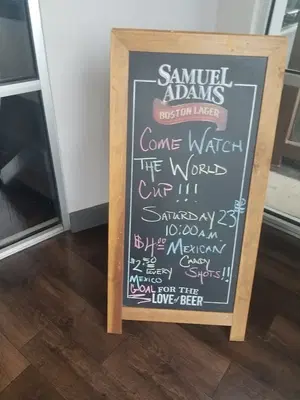 SAMUEL
ADAMS
BOSTON LAGER
COME WATCH
THE WORLD
CUP!!!
SATURDAY 23RD
10:00 A.M.
$4.00 MEXICAN
CANDY
SHOTS!!
$2.50 EVERY
MEXICO
GOAL FOR THE
LOVE of BEER